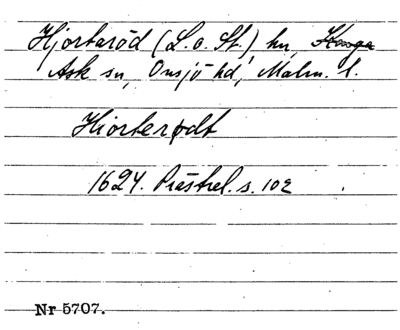 Hjorteröd (L. o. St.) hn, Konga
Ask sn, Onsjö hd, Malm. l.
Hiorterødt
1624. Prästrel. s. 102
Nr 5707.